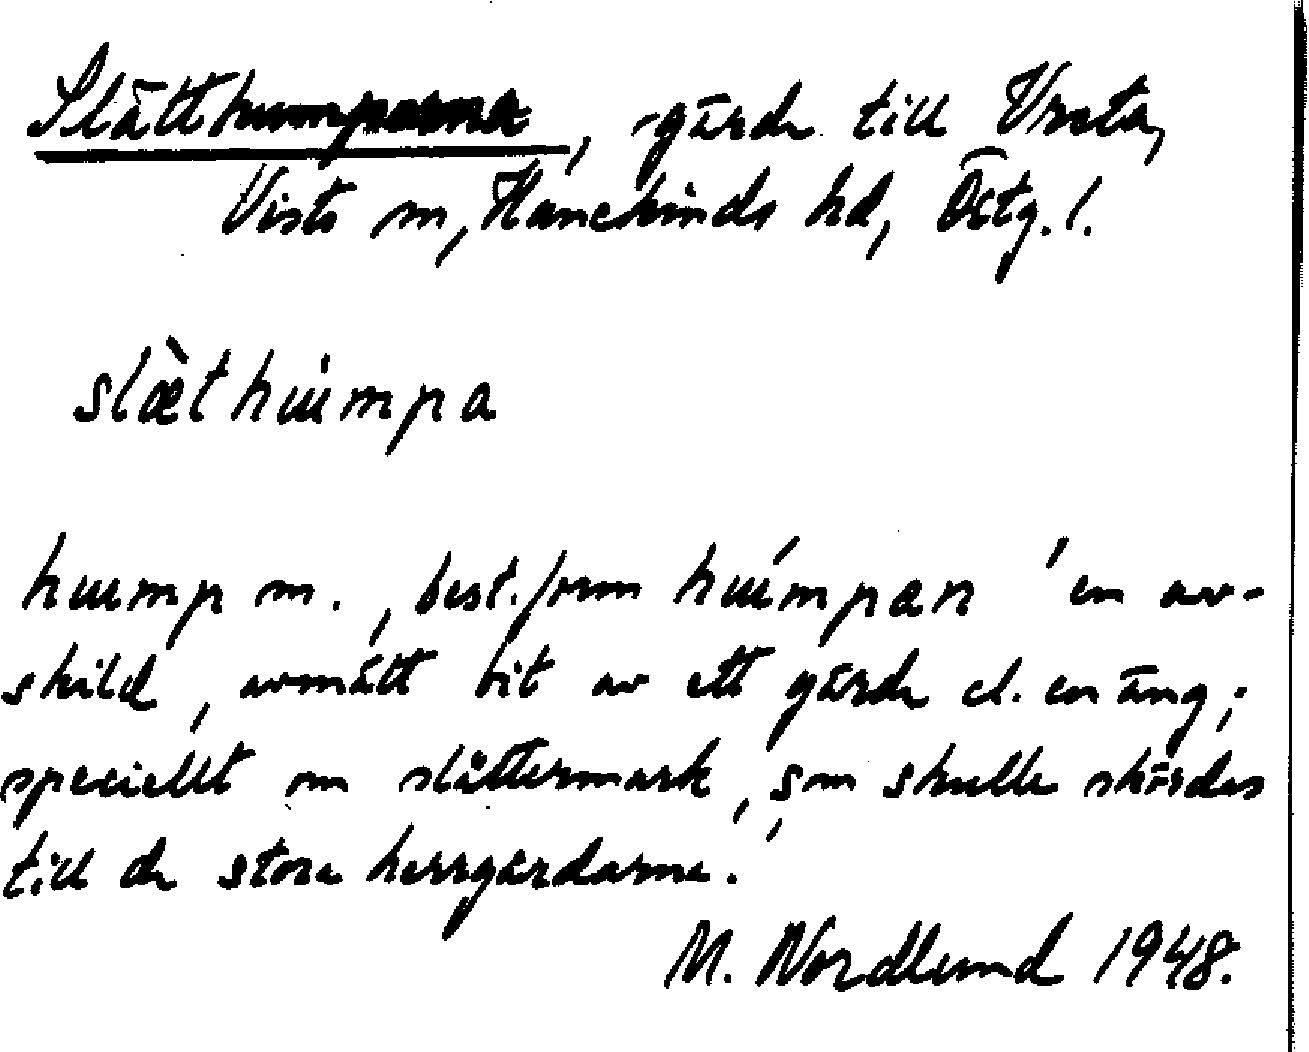 Slätthumparna, gärde till Vrsta,
Vists sn, Hanekinds hd, Östg. l.
slæ̀thu̇mpa
hump m., best. form hu̇́mpan 'en av-
skild, avmätt bit av ett gärde el. en äng;
speciellt om slåttermark, som skulle skördas
till de stora herrgårdarna.'
M. Nordlund 1948.